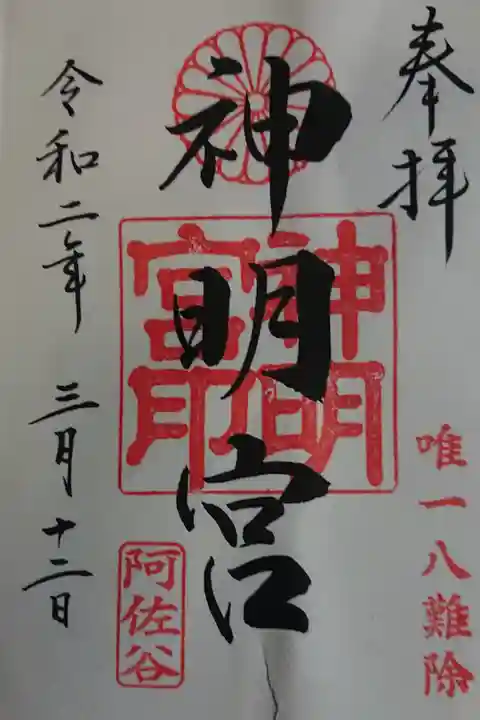 奉拝
唯一八難除
神明宮
神明宮印
阿佐谷
令和二年 三月十二日